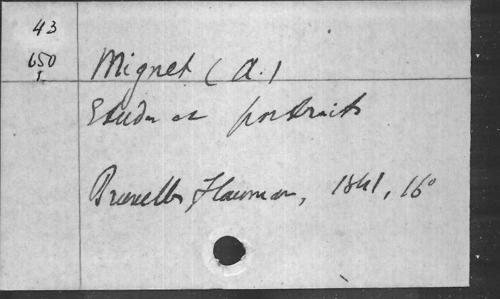 43
650
1.
Mignet (A.)
Etudes et portraits
Bruxelles Hauman, 1841, 16°